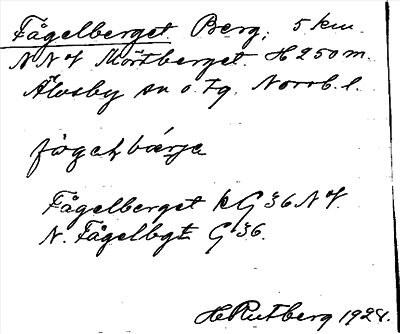 Fågelberget Berg, 5 km.
NNV Mörtberget. H 250 m.
Älvsby sn o. tg. Norrb. l.
Fågelberget k G 36 NV.
N. Fågelbgt G 36.
H Rutberg 1928.